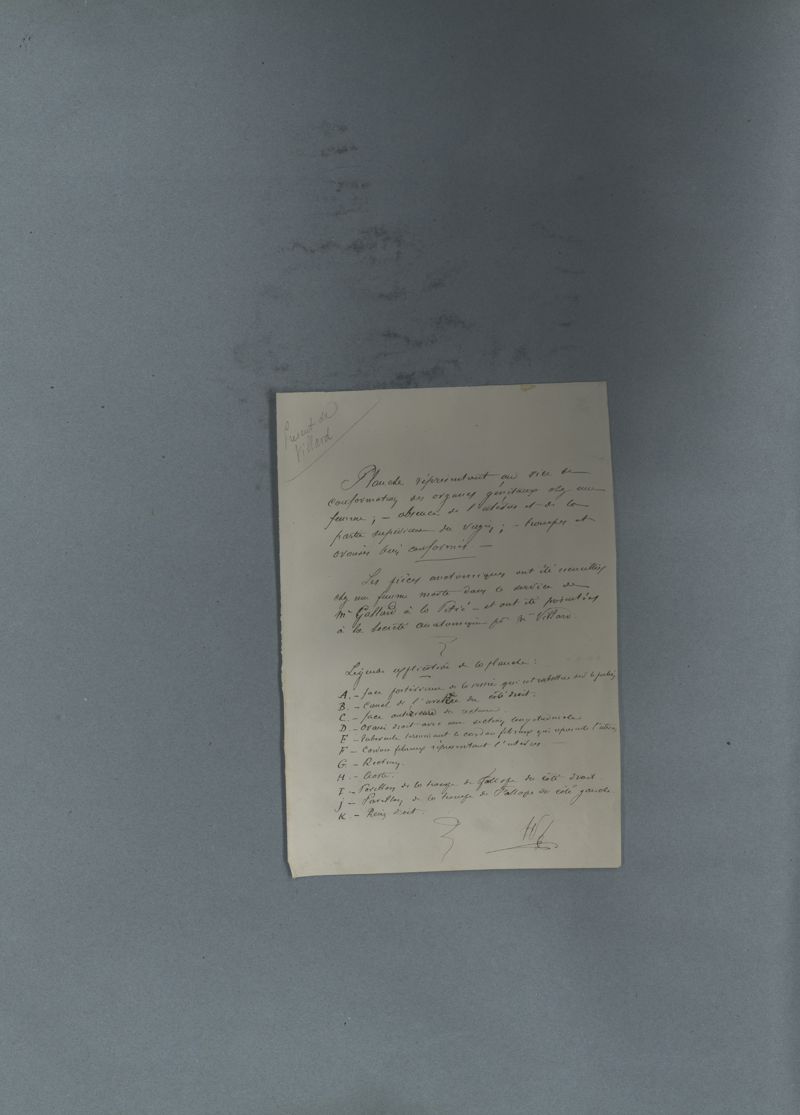 Présent de
Villard
Planche représentant un vice de
conformation des organes génitaux chez une
femme ; — absence de l'utérus et de la
partie supérieure du vagin ; — trompes et
ovaires bien conformés —
Les pièces anatomiques ont été recueillies
chez une femme morte dans le service de
Mr Gallard à la Pitié — et ont été présentées
à la Société anatomique par Mr Villard.
Légende explicative de la planche :
A. — face postérieure de la vessie qui est rabattue sur le pubis,
B. — Canal de l'uretère du côté droit.
C. — face antérieure du rectum.
D. — Ovaire droit avec une section longitudinale
E — tubercule terminant le cordon fibreux qui représente l'utérus
F — Cordon fibreux représentant l'utérus. —
G — Rectum.
H. — Aorte.
I. — Pavillon de la trompe de Fallope du côté droit.
J — Pavillon de la trompe de Fallope du côté gauche
K. — Rein droit.